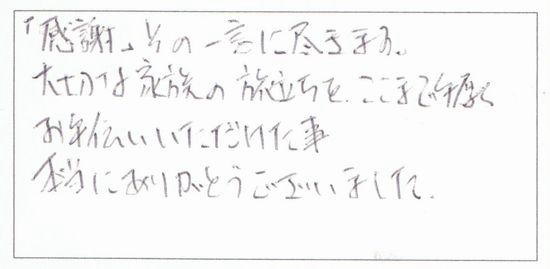 「感謝」その一言に尽きます。
大切な家族の旅立ちを、ここまで手厚く
お手伝いいただけた事
本当にありがとうございました。